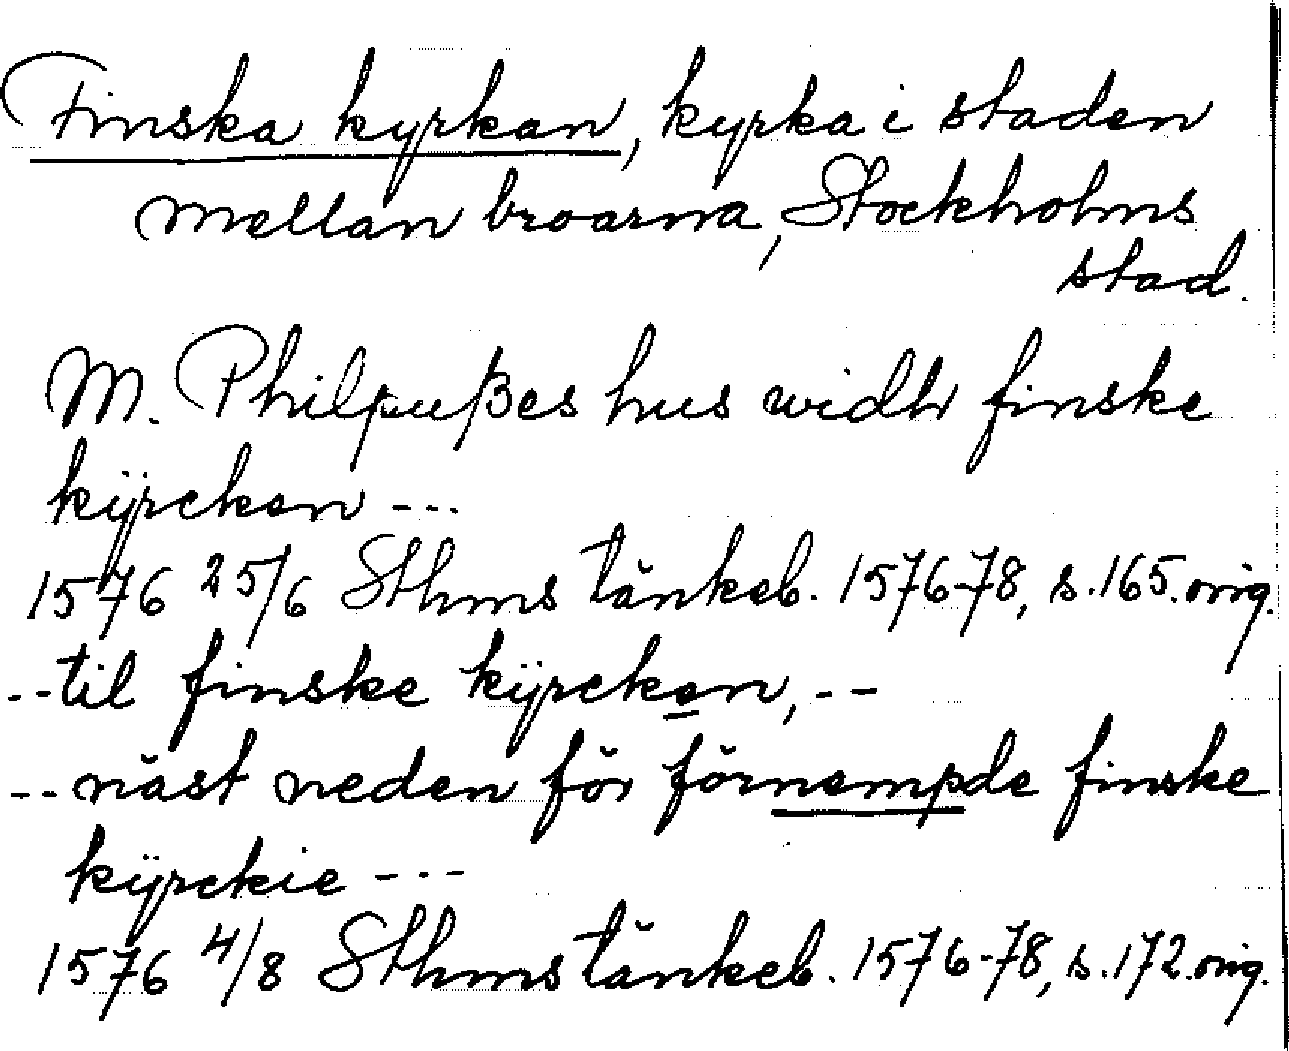 Finska kyrkan, kyrka i staden
mellan broarna, Stockholms
stad.
M. Philpußes hus widh finske
kÿrcken ---
1576 25/6 Sthms tänkeb. 1576-78, s. 165. orig.
-- til finske kÿrcken, --
-- näst neden för förnempde finske
kÿrckie ---
1576 4/8 Sthms tänkeb. 1576-78, s. 172. orig.